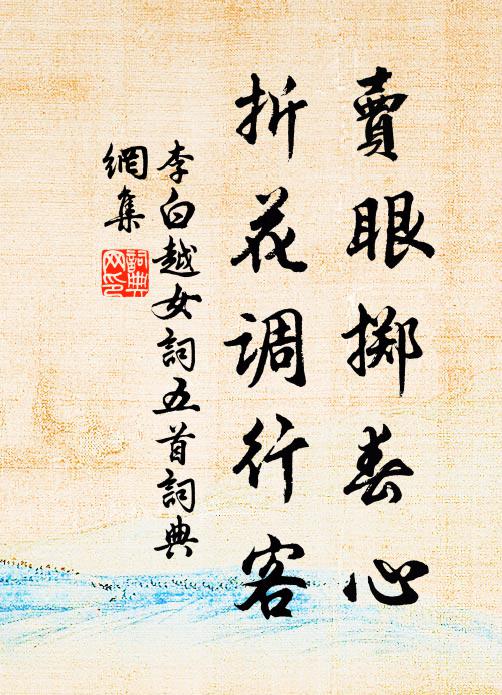 賣眼擲春心
折花调行客
李白越女詞五首詞典
網集
詞典网印